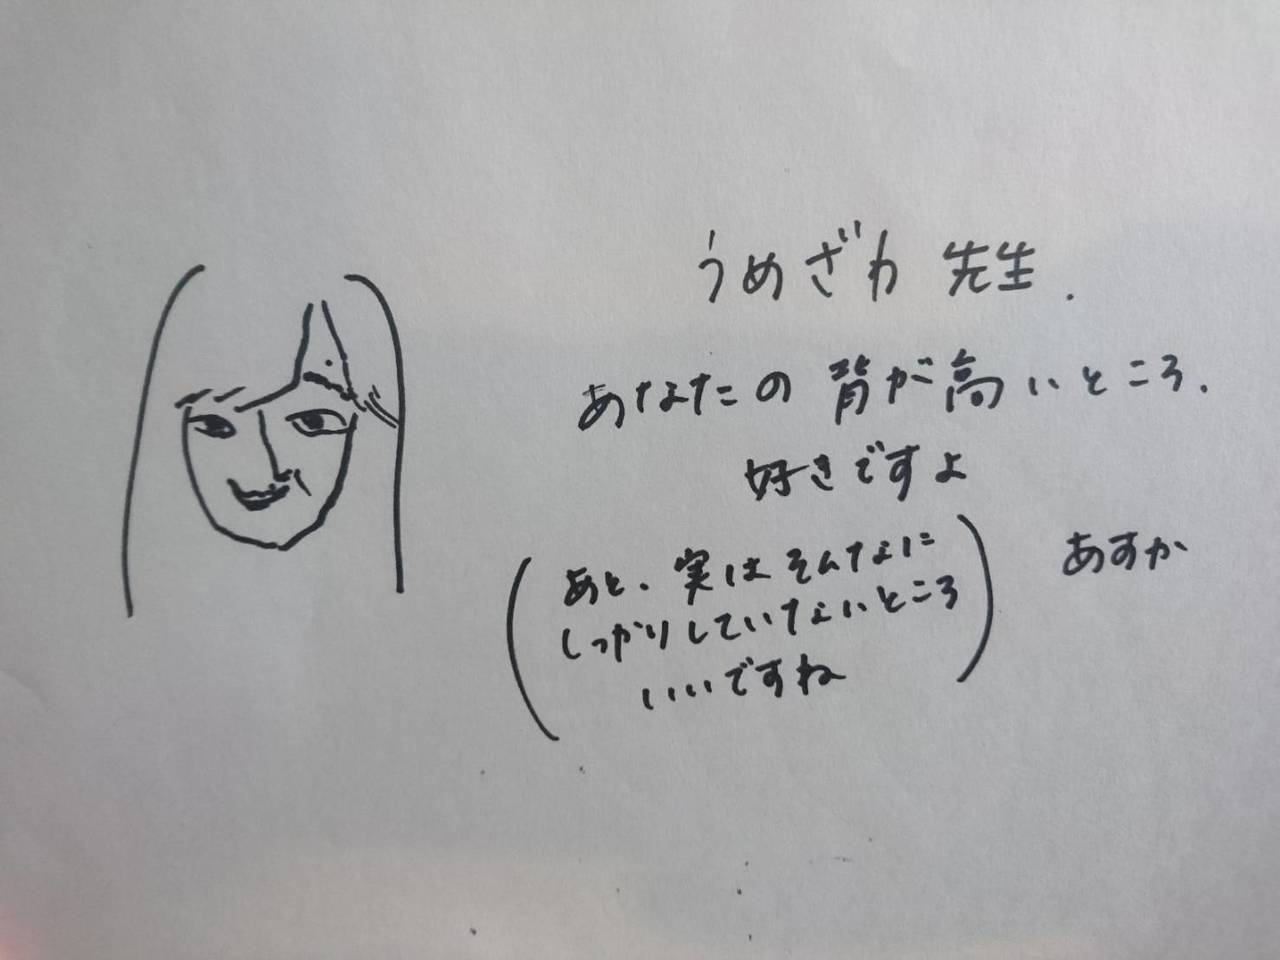 うめざわ 先生.
あなたの 背が高いところ.
好きですよ
(あと、実はそんなに
しっかりしていないところ
いいですね)
あすか